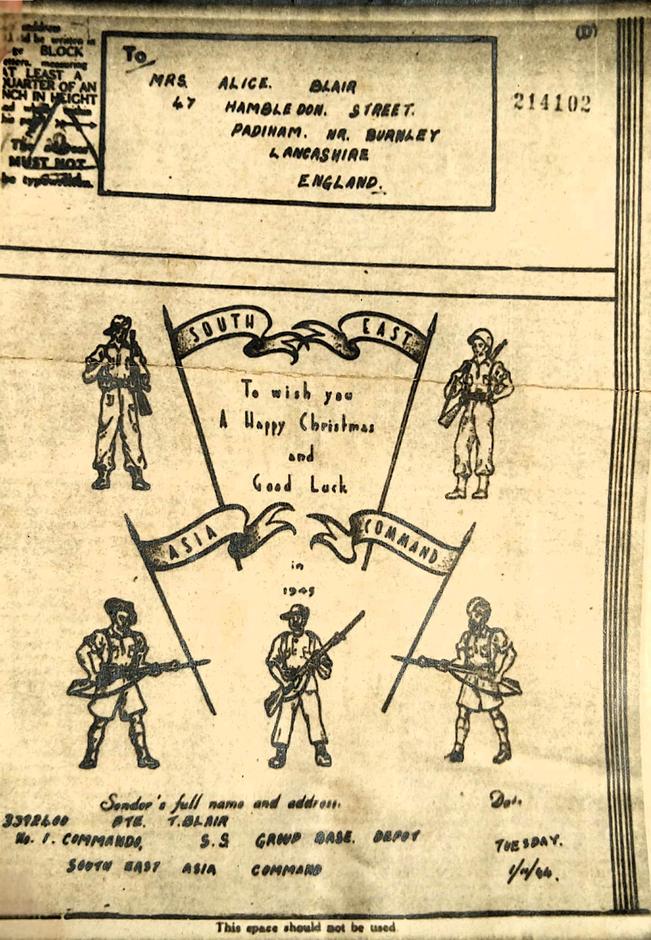 (D)
BLOCK
AT LEAST A
QUARTER OF AN
NCH IN HEIGHT
MUST NOT
be typewritten.
To
MRS. ALICE. BLAIR
47 HAMBLEDON. STREET.
PADIHAM. NR. BURNLEY
LANCASHIRE
ENGLAND.
214102
SOUTH EAST
To wish you
A Happy Christmas
and
Good Luck
ASIA COMMAND
in
1945
Sender's full name and address.
Date.
PTE. T. BLAIR
No. 1. COMMANDO, S.S GROUP BASE. DEPOT
SOUTH EAST ASIA COMMAND
TUESDAY.
This space should not be used